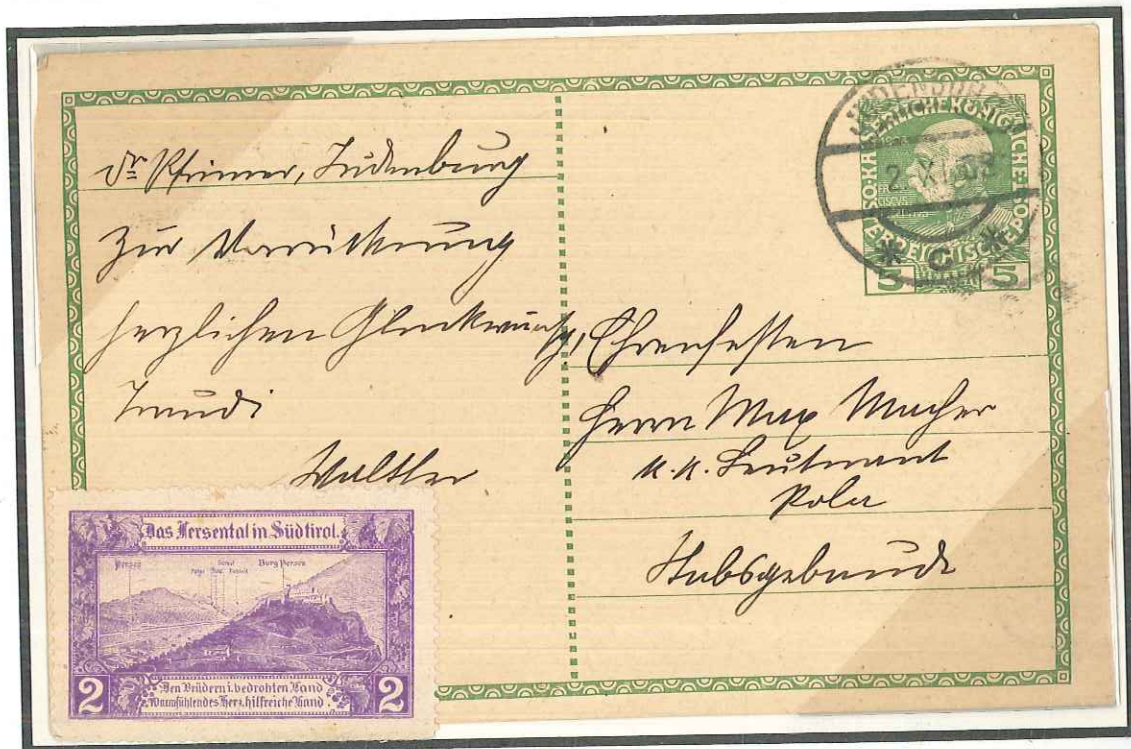 Dr Pfrimer, Judenburg
Zur Vorrückung
herzlichen Glückwunsch,
Traudi
Walther
JUDENBURG
2. XI. 08
* C *
KAISERLICHE KÖNIGLICHE
ÖSTERREICHISCHE POST
5 HELLER 5
Ehrenfesten
Herrn Max Macher
k. k. Leutnant
Pola
Stabsgebäude
Das Fersental in Südtirol.
Persen
Burg Persen
Den Brüdern i. bedrohten Land
Warmfühlendes Herz, hilfreiche Hand!
2 2